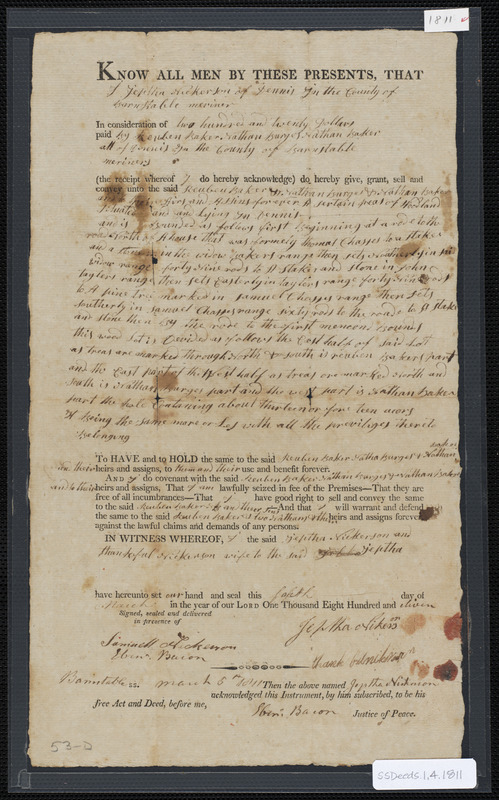 1811
KNOW ALL MEN BY THESE PRESENTS, THAT
I Jeptha Nickerson of Dennis In the County of
Barnstable meriner
In consideration of two hundred an twenty Dollars
paid By Reuben Baker Nathan Burge & Nathan Baker
all of Dennis In the County of Barnstable
meriners
(the receipt whereof I do hereby acknowledge) do hereby give, grant, sell and
convey unto the said Reuben Baker Nathan Burger & Nathan Baker
and there Heirs and Assins forever A sertain peas of Wodland
situated and and Lying In Dennis
and is Bounded as follows first Beginning at a rode to the
North of A house that was formerly thomas Chasses to a stake
and a stone in the widow Bakers range then sets northerly in sd
widow range forty nine rods to A stake and stone in John
taylors range then sets Easterly in taylors range forty nine rods
to A pine tree marked in samuel Chasses range then sets
southerly in Samuel Chasses range sixty rods to the rode to A stake
and stone then By the rode to the first menconed Bounds
this wood Lot is Devided as follows the East half of said Lot
as treas are marked through North & south is reuben Bakers part
and the East part of the West half as treas are marked North and
south is Nathan Burges part and the west part is Nathan Baker
part the hole Containing about thirteen or fore teen acors
Be it Being the same more or Les with all the previliges thereto
Belonging
To HAVE and to HOLD the same to the said Reuben Baker Natha Burger & Nathan
Baker
In their heirs and assigns, to them and their use and benefit forever.
AND I do covenant with the said Reuben Baker Nathan Burger & Nathan Baker
and to their heirs and assigns, That I am lawfully seized in fee of the Premises—That they are
free of all incumbrances—That I have good right to sell and convey the same
to the said Reuben Baker & two other —And that I will warrant and defend
the same to the said Reuben Baker & two Nathans & their heirs and assigns forever
against the lawful claims and demands of any persons.
IN WITNESS WHEREOF, I the said Jeptha Nickerson and
thankful Nickerson wife to the said Jeptha
have hereunto set our hand and seal this fifth day of
March in the year of our LORD One Thousand Eight Hundred and eleven
Signed, sealed and delivered
in presence of
Jeptha Nickerson
Samuell Nickerson
Eben. Bacon
Barnstable ss. march 5th 1811 Then the above named Jeptha Nickerson
acknowledged this Instrument, by him subscribed, to be his
free Act and Deed, before me,
Eben. Bacon Justice of Peace.
53-D
SSDeeds.1.4.1811